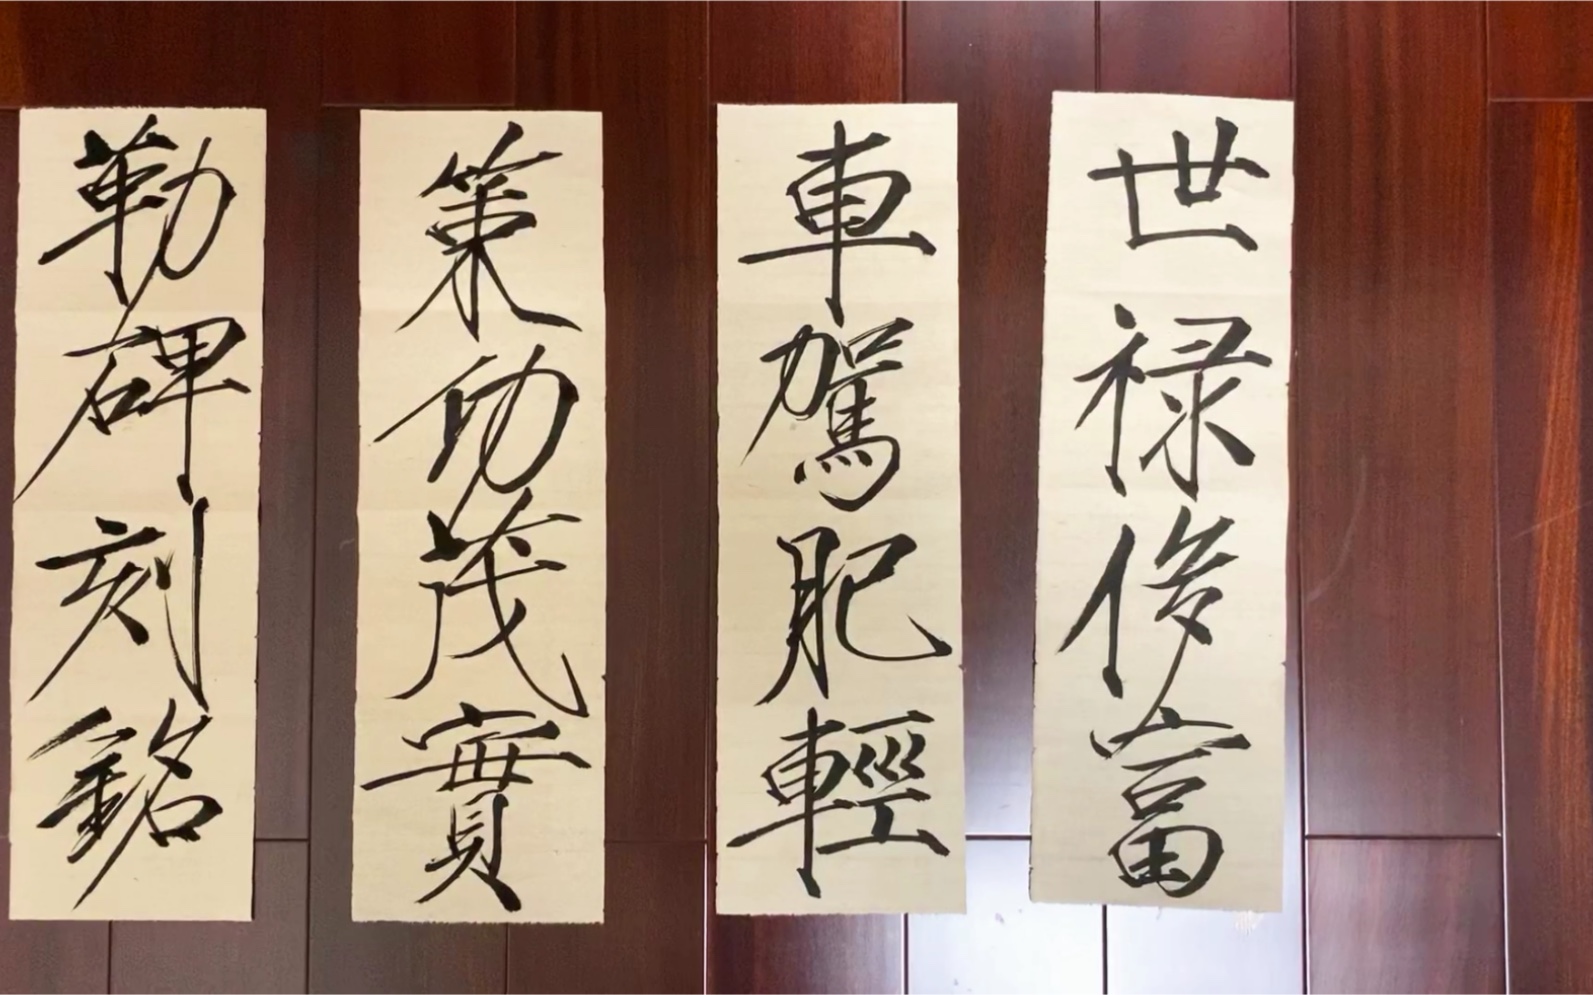 世禄侈富
車駕肥輕
策功茂實
勒碑刻銘